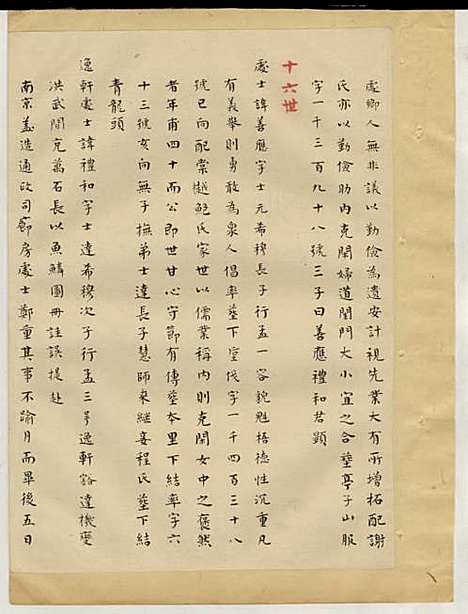 處鄉人無非議以勤儉為遺安計視先業大有所增拓配謝
氏亦以勤儉助內克閑婦道閨門大小宜之合塟亭子山服
字一千三百九十八號三子曰善應禮和君顯
十六世
處士諱善應字士元希穆長子行孟一容貌魁梧德性沉重凡
有義舉則勇敢為衆人倡率塟下室伐字一千四百三十八
號巳向配棠樾鮑氏家世以儒業稱內則克閑女中之褒然
者年甫四十而公即世甘心守節有傳塟本里下結率字六
十三號亥向無子撫弟士達長子慧師來繼妾程氏塟下結
青龍頭
逸軒處士諱禮和字士達希穆次子行孟三号逸軒豁達機變
洪武間充萬石長以魚鱗圖冊註誤提赴
南京盖造通政司廊房處士鄭重其事不踰月而畢後五日